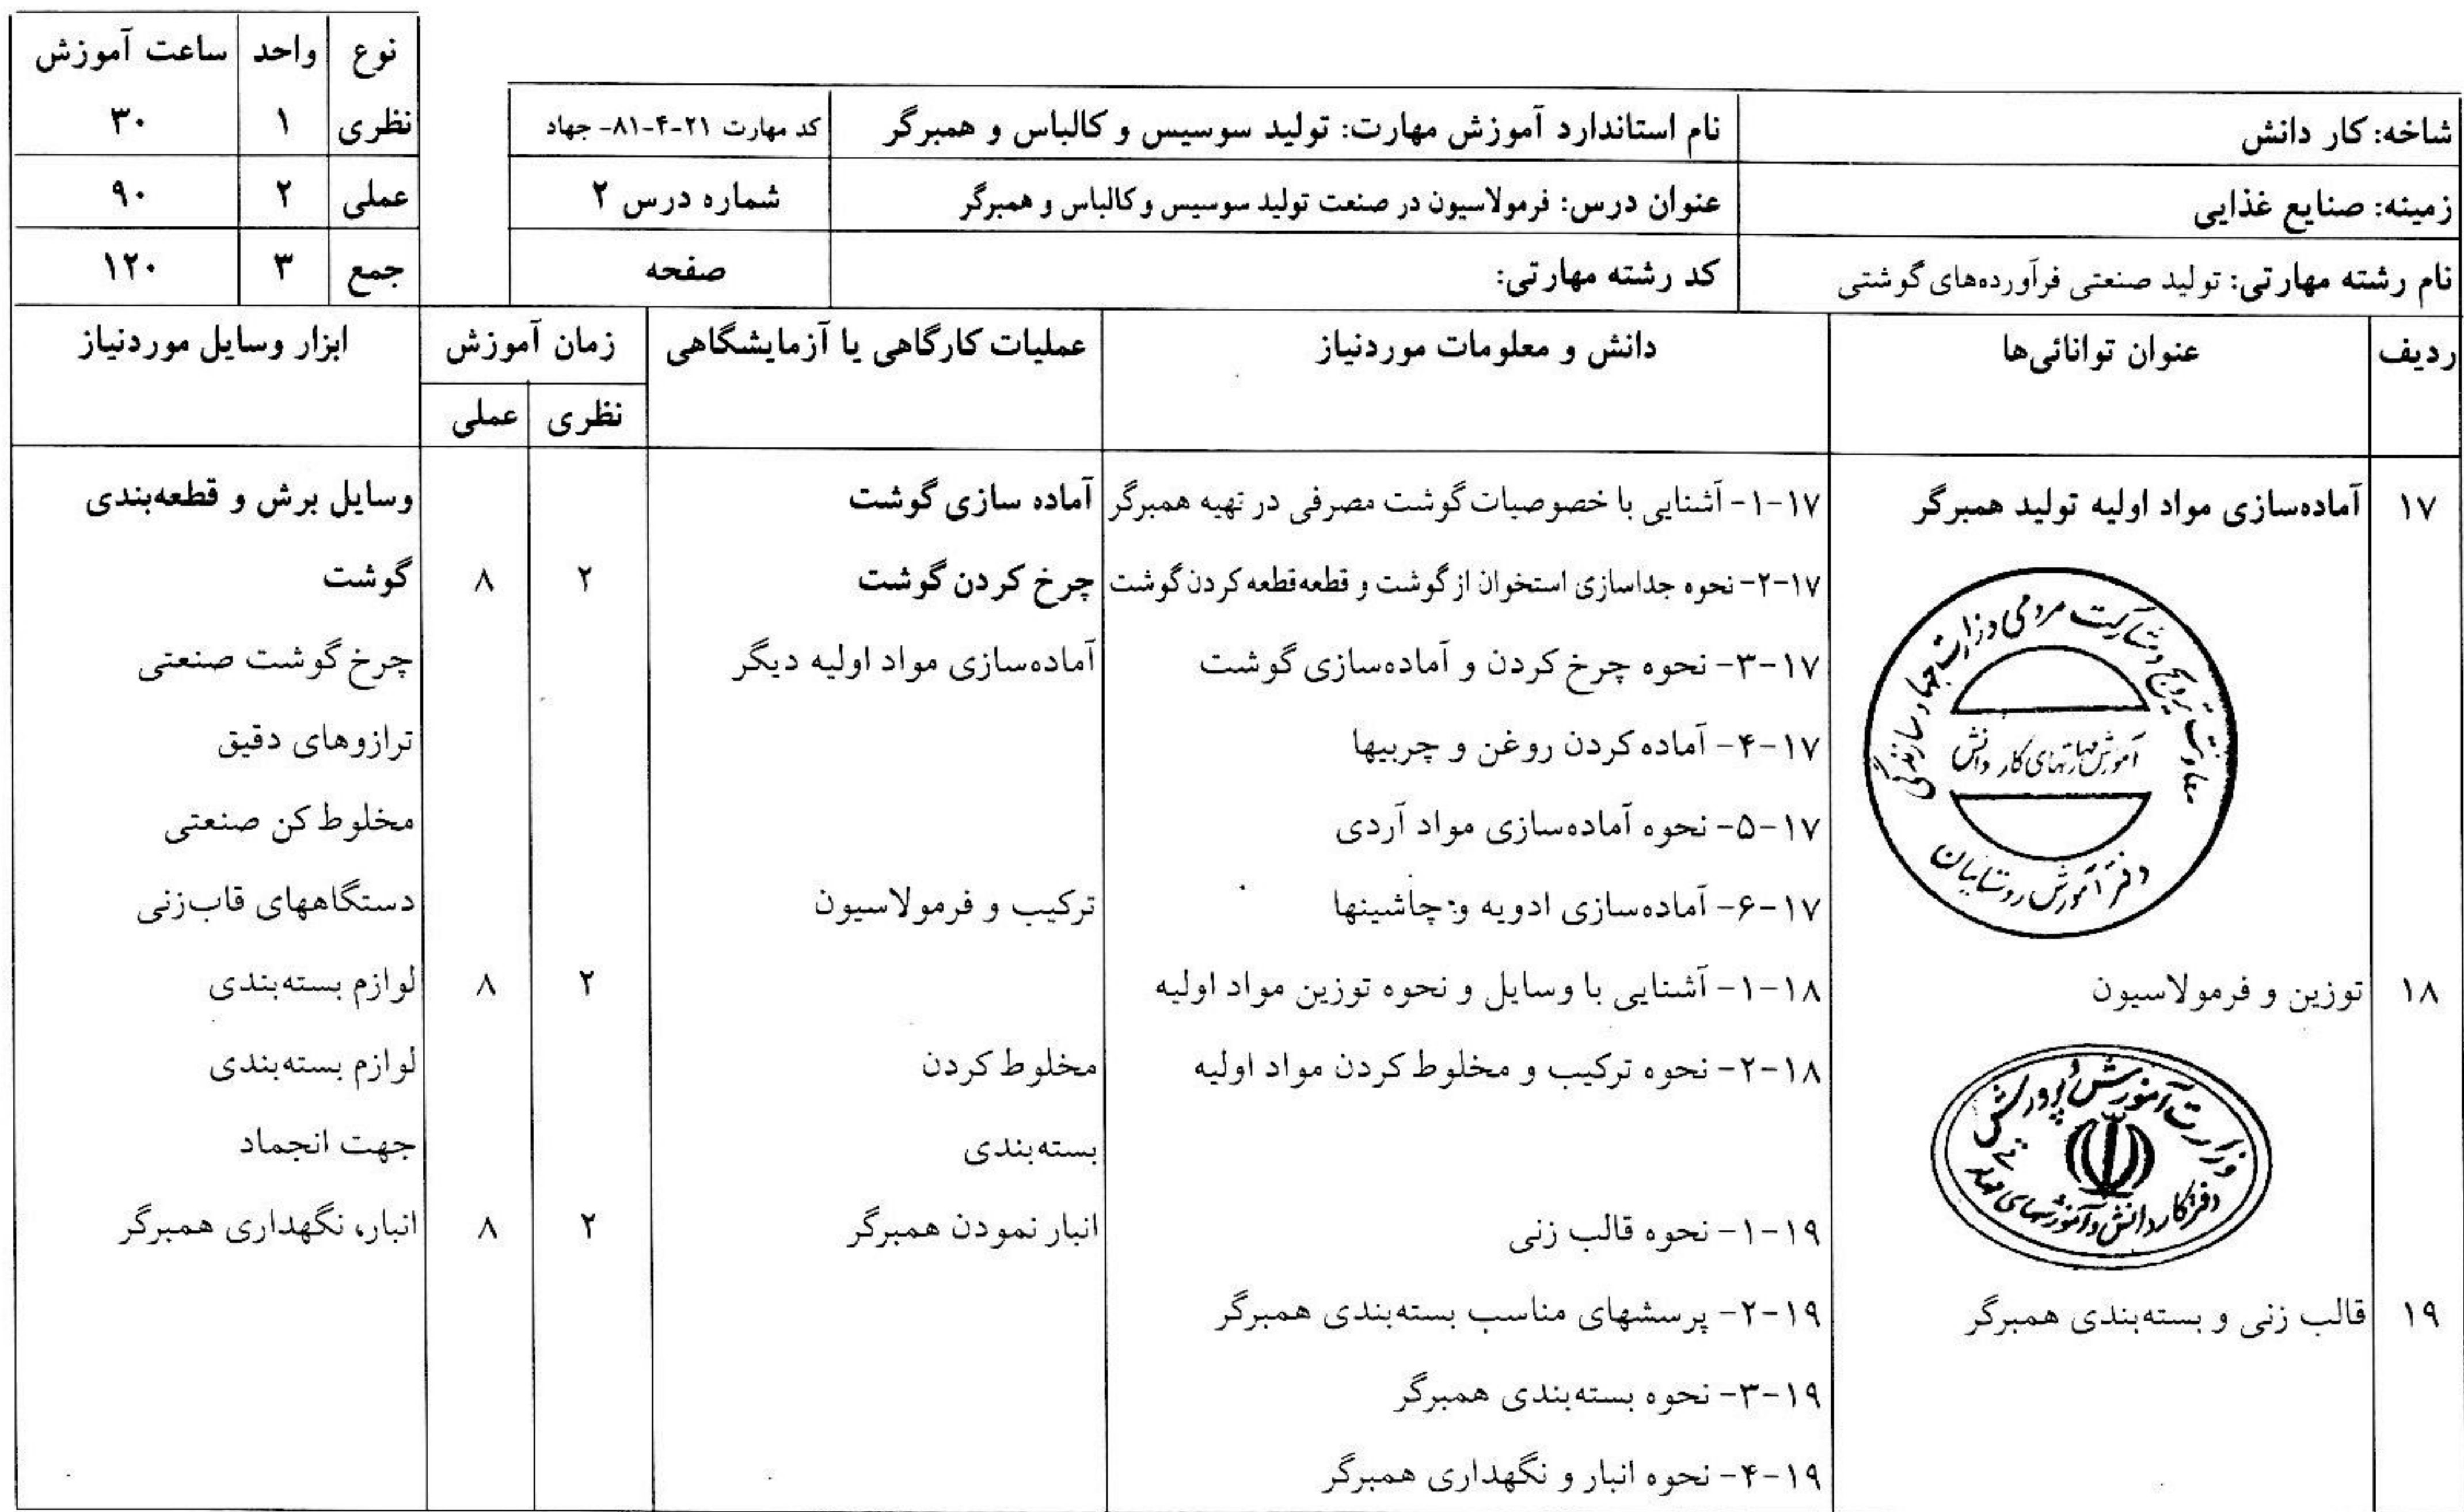 نوع واحد ساعت آموزش
نظری ۱ ۳۰
عملی ۲ ۹۰
جمع ۳ ۱۲۰
شاخه: کار دانش نام استاندارد آموزش مهارت: تولید سوسیس و کالباس و همبرگر کد مهارت ۲۱-۴-۸۱- جهاد
زمینه: صنایع غذایی عنوان درس: فرمولاسیون در صنعت تولید سوسیس و کالباس و همبرگر شماره درس ۲
نام رشته مهارتی: تولید صنعتی فرآورده‌های گوشتی کد رشته مهارتی: صفحه
ردیف عنوان توانائی‌ها دانش و معلومات موردنیاز عملیات کارگاهی یا آزمایشگاهی زمان آموزش ابزار وسایل موردنیاز
نظری عملی
۱۷ آماده‌سازی مواد اولیه تولید همبرگر ۱۷-۱- آشنایی با خصوصیات گوشت مصرفی در تهیه همبرگر آماده سازی گوشت وسایل برش و قطعه‌بندی
۱۷-۲- نحوه جداسازی استخوان از گوشت و قطعه‌قطعه کردن گوشت چرخ کردن گوشت ۲ ۸ گوشت
۱۷-۳- نحوه چرخ کردن و آماده‌سازی گوشت آماده‌سازی مواد اولیه دیگر چرخ گوشت صنعتی
۱۷-۴- آماده کردن روغن و چربیها ترازوهای دقیق
۱۷-۵- نحوه آماده‌سازی مواد آردی مخلوط کن صنعتی
۱۷-۶- آماده‌سازی ادویه و چاشینها ترکیب و فرمولاسیون دستگاههای قاب‌زنی
۱۸ توزین و فرمولاسیون ۱۸-۱- آشنایی با وسایل و نحوه توزین مواد اولیه ۲ ۸ لوازم بسته‌بندی
۱۸-۲- نحوه ترکیب و مخلوط کردن مواد اولیه مخلوط کردن لوازم بسته‌بندی
بسته‌بندی جهت انجماد
۱۹-۱- نحوه قالب زنی انبار نمودن همبرگر ۲ ۸ انبار، نگهداری همبرگر
۱۹ قالب زنی و بسته‌بندی همبرگر ۱۹-۲- پرسشهای مناسب بسته‌بندی همبرگر
۱۹-۳- نحوه بسته‌بندی همبرگر
۱۹-۴- نحوه انبار و نگهداری همبرگر
معاونت ترویج و مشارکت مردمی وزارت جهاد سازندگی
آموزش مهارتهای کار دانش
دفتر آموزش روستاییان
وزارت آموزش و پرورش
دفتر کار دانش و آموزشهای